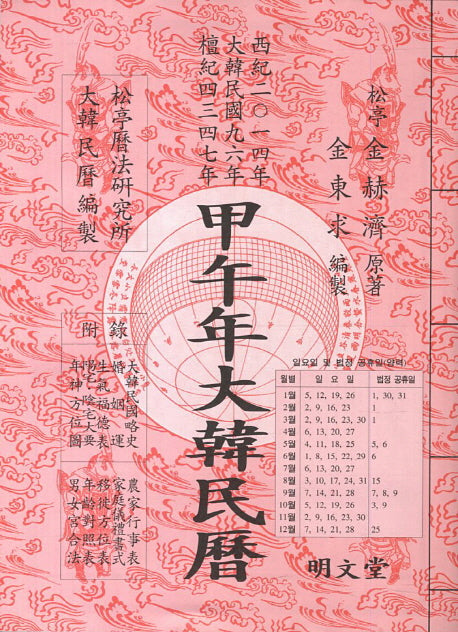 松亭 金赫濟 原著
金東求 編製
西紀二〇一四年
大韓民國九六年
檀紀四三四七年
甲午年大韓民曆
松亭曆法研究所
大韓民曆編製
附錄
大韓民國略史
婚姻運
生氣福德表
陽宅·陰宅大要
年神方位圖
農家行事表
家庭儀禮書式
移徙方位表
年齡對照表
男女宮合法
일요일 및 법정 공휴일(양력)
월별 일 요 일 법정 공휴일
1월 5, 12, 19, 26 1, 30, 31
2월 2, 9, 16, 23
3월 2, 9, 16, 23, 30 1
4월 6, 13, 20, 27
5월 4, 11, 18, 25 5, 6
6월 1, 8, 15, 22, 29 6
7월 6, 13, 20, 27
8월 3, 10, 17, 24, 31 15
9월 7, 14, 21, 28 7, 8, 9
10월 5, 12, 19, 26 3, 9
11월 2, 9, 16, 23, 30
12월 7, 14, 21, 28 25
明文堂